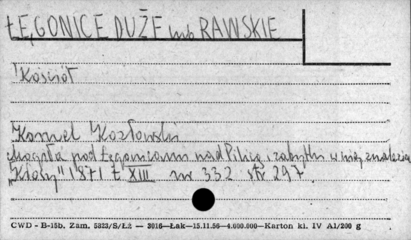 ŁĘGONICE DUŻE lub RAWSKIE
Kościół
Kornel Kozłowski
Mogiła pod Łęgonicami nad Pilicą i zabytki w niej znalezione
"Kłosy" 1871 t XIII nr 332 str 297.
CWD - B-15b. Zam. 5323/S/Łż — 3016—Łak—15.11.56—4.000.000—Karton kl. IV A1/200 g